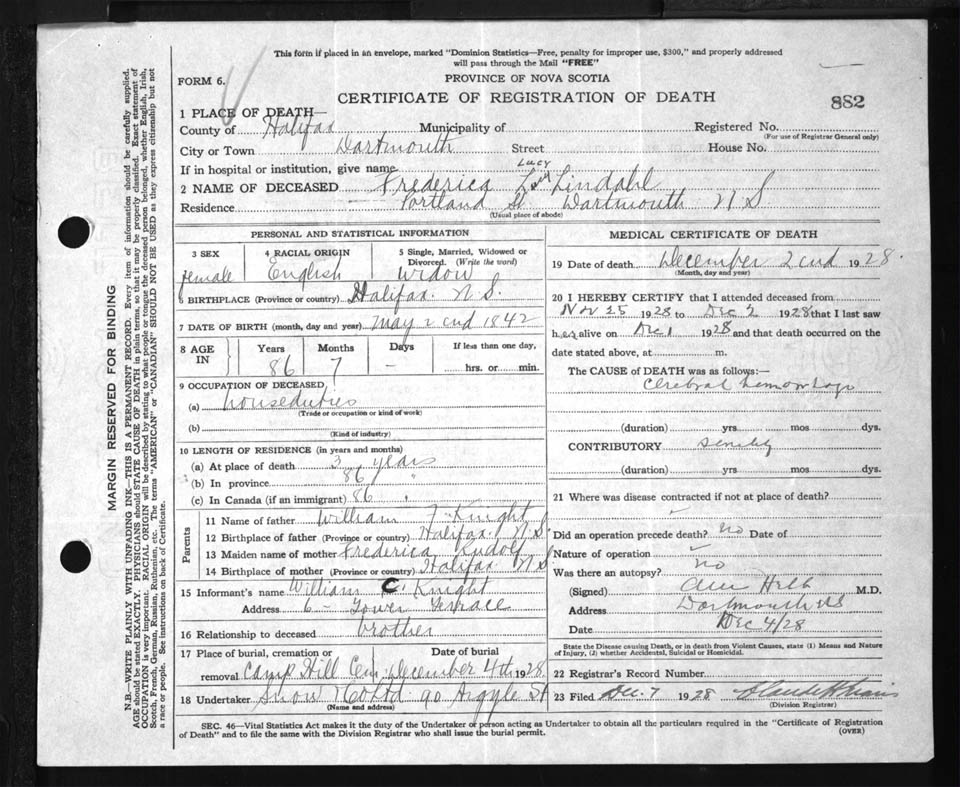 This form if placed in an envelope, marked "Dominion Statistics—Free, penalty for improper use, $300," and properly addressed
will pass through the Mail "FREE"
FORM 6.
PROVINCE OF NOVA SCOTIA
CERTIFICATE OF REGISTRATION OF DEATH
882
1 PLACE OF DEATH—
County of Halifax Municipality of Registered No.
(For use of Registrar General only)
City or Town Dartmouth Street House No.
If in hospital or institution, give name
Lucy
2 NAME OF DECEASED Frederica Lindahl
Residence Portland St Dartmouth N S
(Usual place of abode)
PERSONAL AND STATISTICAL INFORMATION
3 SEX 4 RACIAL ORIGIN 5 Single, Married, Widowed or
Divorced. (Write the word)
female English Widow
6 BIRTHPLACE (Province or country) Halifax. N S.
7 DATE OF BIRTH (month, day and year) May 2 cnd 1842
8 AGE IN Years Months Days If less than one day,
86 7 — hrs. or min.
9 OCCUPATION OF DECEASED
(a) houseduties
(Trade or occupation or kind of work)
(b)
(Kind of industry)
10 LENGTH OF RESIDENCE (in years and months)
(a) At place of death 3 years
(b) In province 86 "
(c) In Canada (if an immigrant) 86 "
Parents
11 Name of father William F Knight
12 Birthplace of father (Province or country) Halifax N S.
13 Maiden name of mother Frederica Rudolf
14 Birthplace of mother (Province or country) Halifax N S
15 Informant's name William C. Knight
Address 6 - Tower Terrace
16 Relationship to deceased brother
17 Place of burial, cremation or Date of burial
removal Camp Hill Cem December 4th 1928
18 Undertaker Snow & Co Ltd 90 Argyle St
(Name and address)
MEDICAL CERTIFICATE OF DEATH
19 Date of death December 2 cnd 1928.
(Month, day and year)
20 I HEREBY CERTIFY that I attended deceased from
Nov 25 1928 to Dec 2 1928 that I last saw
her alive on Dec 1 1928 and that death occurred on the
date stated above, at m.
The CAUSE of DEATH was as follows:—
Cerebral hemorrhage
(duration) yrs mos dys.
CONTRIBUTORY Senility
(duration) yrs mos dys.
21 Where was disease contracted if not at place of death?
Did an operation precede death? no Date of
Nature of operation
Was there an autopsy? no
(Signed) M.D.
Address Dartmouth NS
Date Dec 4/28
State the Disease causing Death, or in death from Violent Causes, state (1) Means and Nature
of Injury, (2) whether Accidental, Suicidal or Homicidal.
22 Registrar's Record Number
23 Filed Dec. 7 1928
(Division Registrar)
SEC. 46—Vital Statistics Act makes it the duty of the Undertaker or person acting as Undertaker to obtain all the particulars required in the "Certificate of Registration
of Death" and to file the same with the Division Registrar who shall issue the burial permit.
(OVER)
MARGIN RESERVED FOR BINDING
N.B.—WRITE PLAINLY WITH UNFADING INK—THIS IS A PERMANENT RECORD. Every item of information should be carefully supplied.
AGE should be stated EXACTLY. PHYSICIANS should STATE CAUSE OF DEATH in plain terms, so that it may be properly classified. Exact statement of
OCCUPATION is very important. RACIAL ORIGIN will be described by stating to what people or tongue the deceased person belonged, whether English, Irish,
Scotch, French, German, Russian, Ruthenian, etc. The terms "AMERICAN" or "CANADIAN" SHOULD NOT BE USED as they express citizenship but not
a race or people. See instructions on back of Certificate.